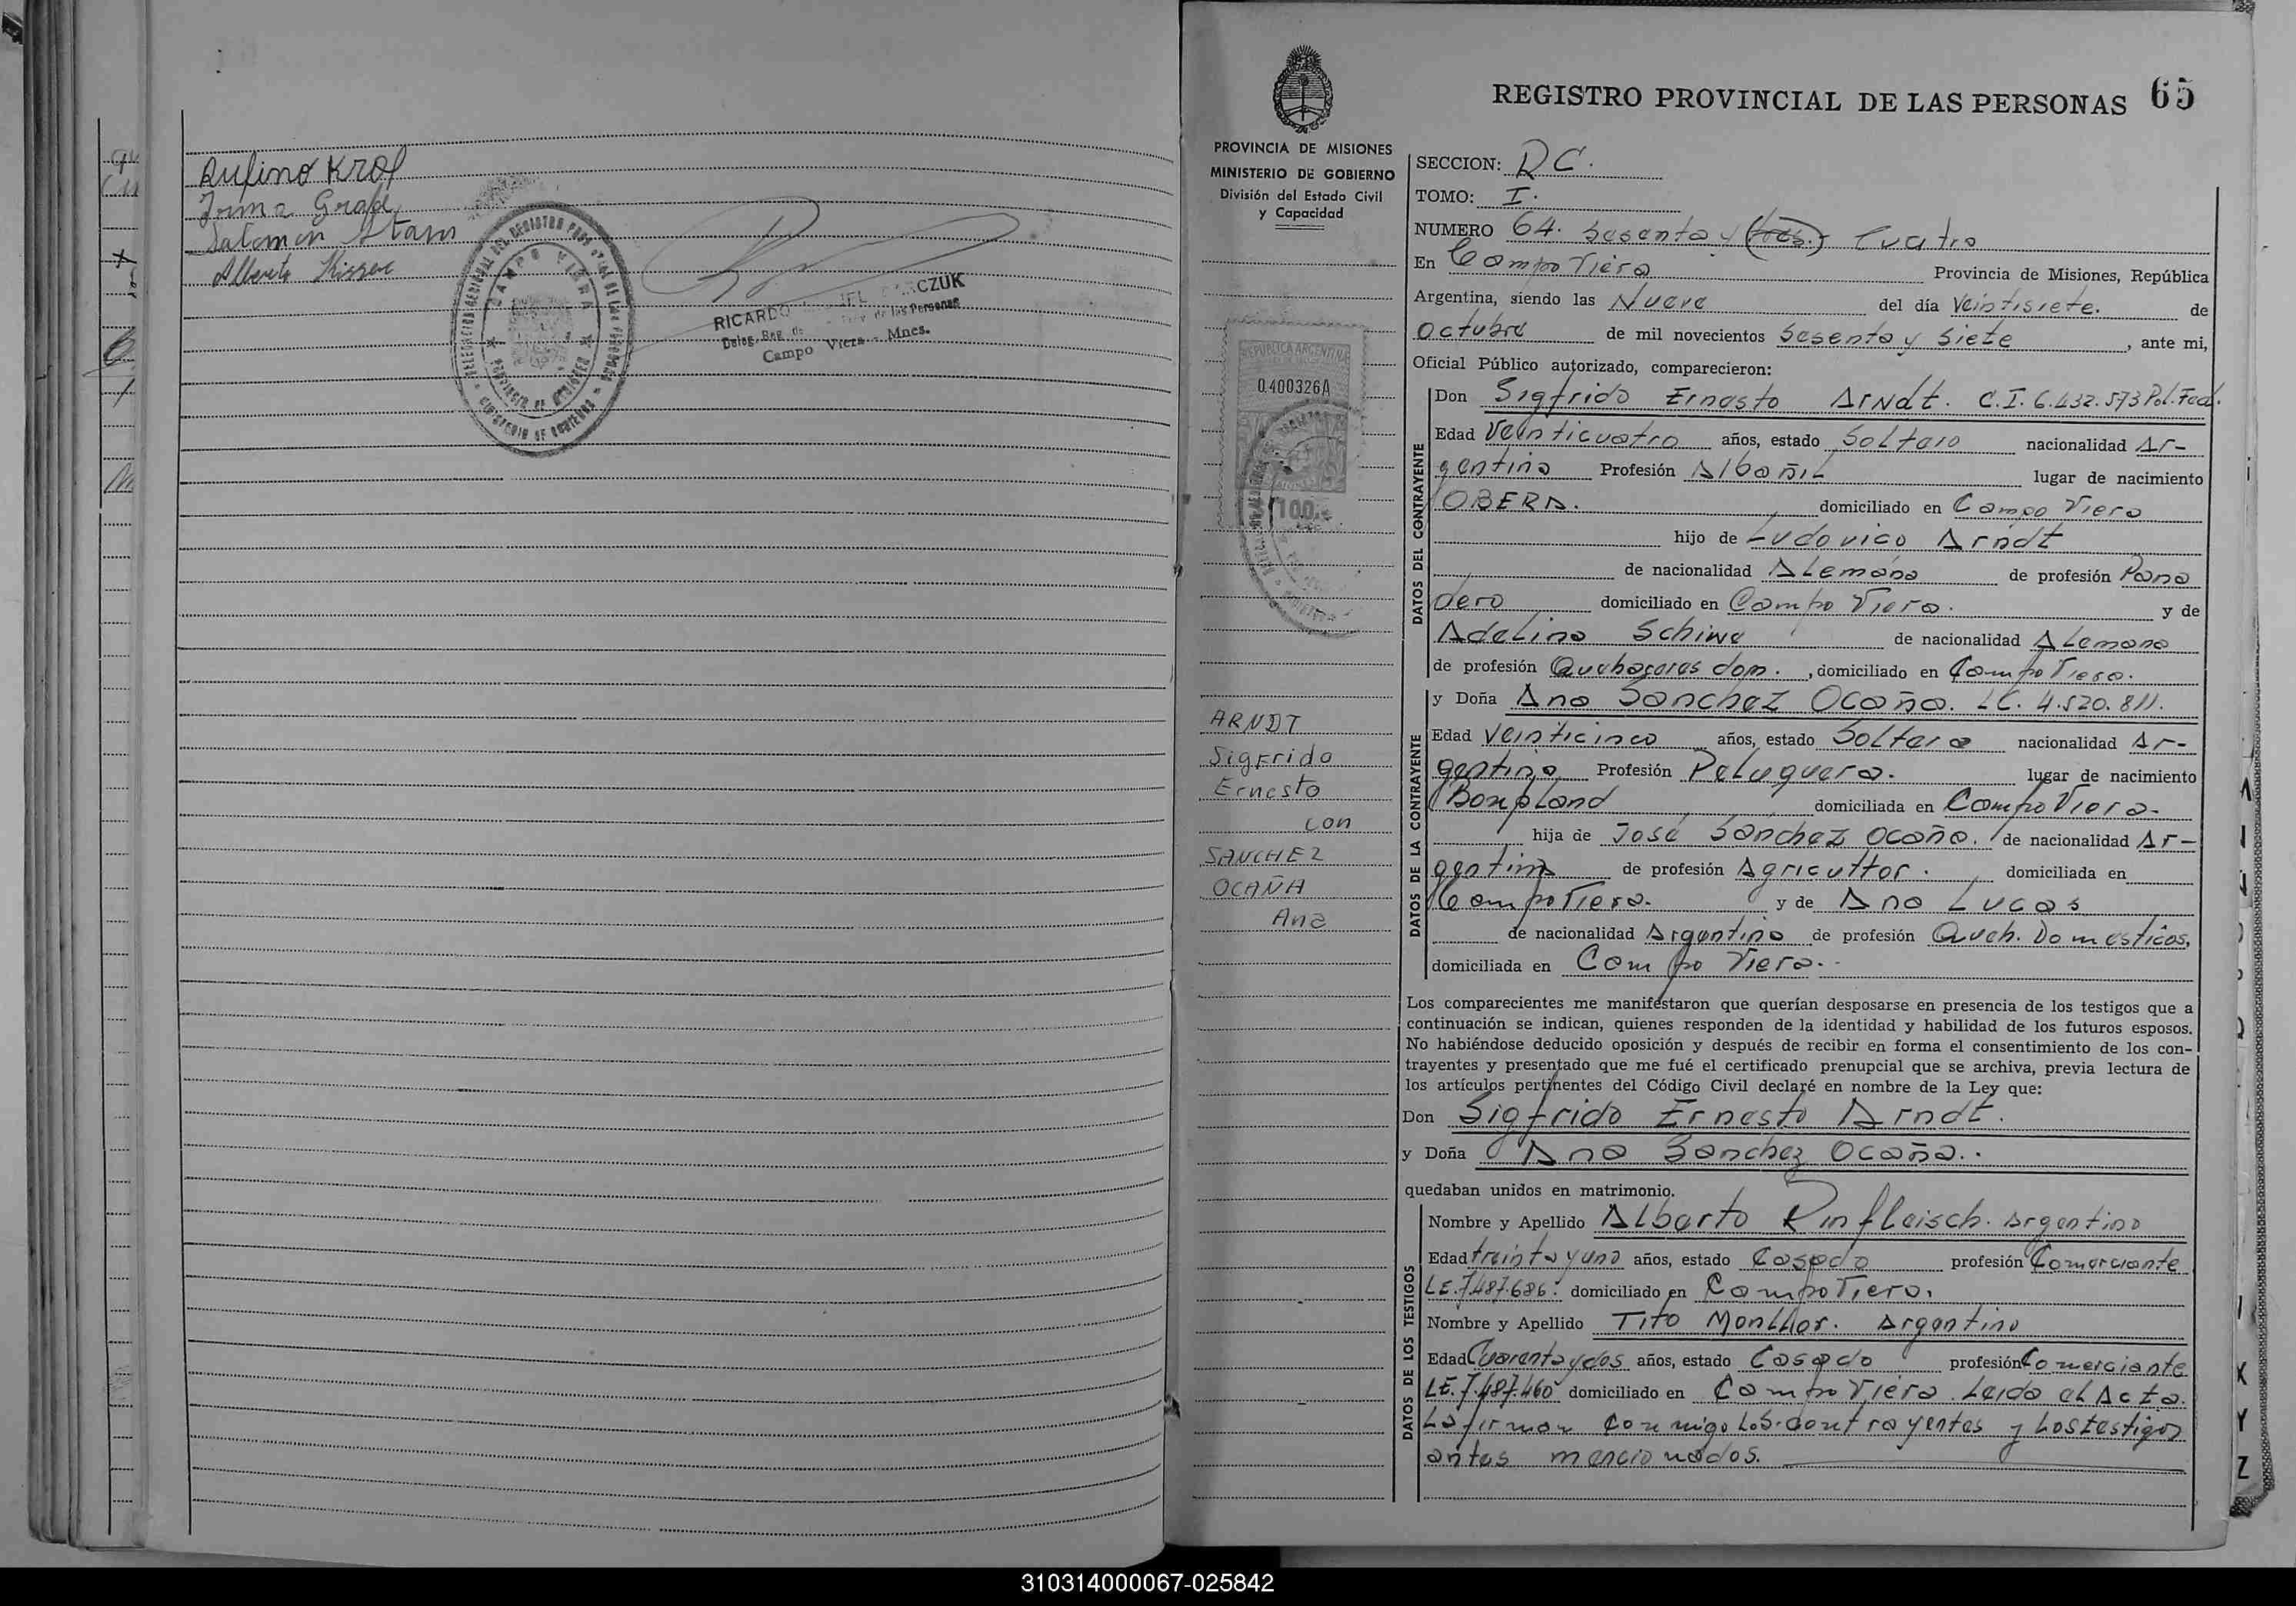 Rufino Krol
Irma Grade
Salomon
Alberto
CAMPO VIERA
PROVINCIA DE MISIONES
MINISTERIO DE GOBIERNO
RICARDO CZUK
Deleg. Reg. de las Personas
Campo Viera - Mnes.
REGISTRO PROVINCIAL DE LAS PERSONAS 65
PROVINCIA DE MISIONES
MINISTERIO DE GOBIERNO
División del Estado Civil
y Capacidad
REPUBLICA ARGENTINA
0.400326A
100
ARNDT
Sigfrido
Ernesto
con
SANCHEZ
OCAÑA
Ana
SECCION: RC.
TOMO: I.
NUMERO 64. Sesenta y (tres.) Cuatro
En Campo Viera Provincia de Misiones, República
Argentina, siendo las Nueve del día Veintisiete. de
Octubre de mil novecientos Sesenta y Siete, ante mi,
Oficial Público autorizado, comparecieron:
DATOS DEL CONTRAYENTE
Don Sigfrido Ernesto Arndt. C.I. 6.432.573 Pol. Fed.
Edad Veinticuatro años, estado Soltero nacionalidad Ar-
gentina Profesión Albañil lugar de nacimiento
OBERA. domiciliado en Campo Viera
hijo de Ludovico Arndt
de nacionalidad Alemana de profesión Pana
dero domiciliado en Campo Viera. y de
Adelina Schiwe de nacionalidad Alemana
de profesión Quehaceres dom., domiciliado en Campo Viera.
DATOS DE LA CONTRAYENTE
y Doña Ana Sanchez Ocaña. LC. 4.520.811.
Edad Veinticinco años, estado Soltera nacionalidad Ar-
gentina Profesión Peluquera. lugar de nacimiento
Bonpland domiciliada en Campo Viera-
hija de José Sanchez Ocaña. de nacionalidad Ar-
gentina de profesión Agricultor. domiciliada en
Campo Viera. y de Ana Lucas
de nacionalidad Argentina de profesión Queh. Domesticos,
domiciliada en Campo Viera.-
Los comparecientes me manifestaron que querían desposarse en presencia de los testigos que a
continuación se indican, quienes responden de la identidad y habilidad de los futuros esposos.
No habiéndose deducido oposición y después de recibir en forma el consentimiento de los con-
trayentes y presentado que me fué el certificado prenupcial que se archiva, previa lectura de
los artículos pertinentes del Código Civil declaré en nombre de la Ley que:
Don Sigfrido Ernesto Arndt.
y Doña Ana Sanchez Ocaña..
quedaban unidos en matrimonio.
DATOS DE LOS TESTIGOS
Nombre y Apellido Alberto Rinfleisch. Argentino
Edad treinta y uno años, estado Casado profesión Comerciante
LE. 7.487.686. domiciliado en Campo Viera.
Nombre y Apellido Tito Monllor. Argentino
Edad Cuarenta y dos años, estado Casado profesión Comerciante
LE. 7.487.460 domiciliado en Campo Viera. Leida el Acta.
La firman conmigo los contrayentes y los testigos
antes mencionados.
310314000067-025842